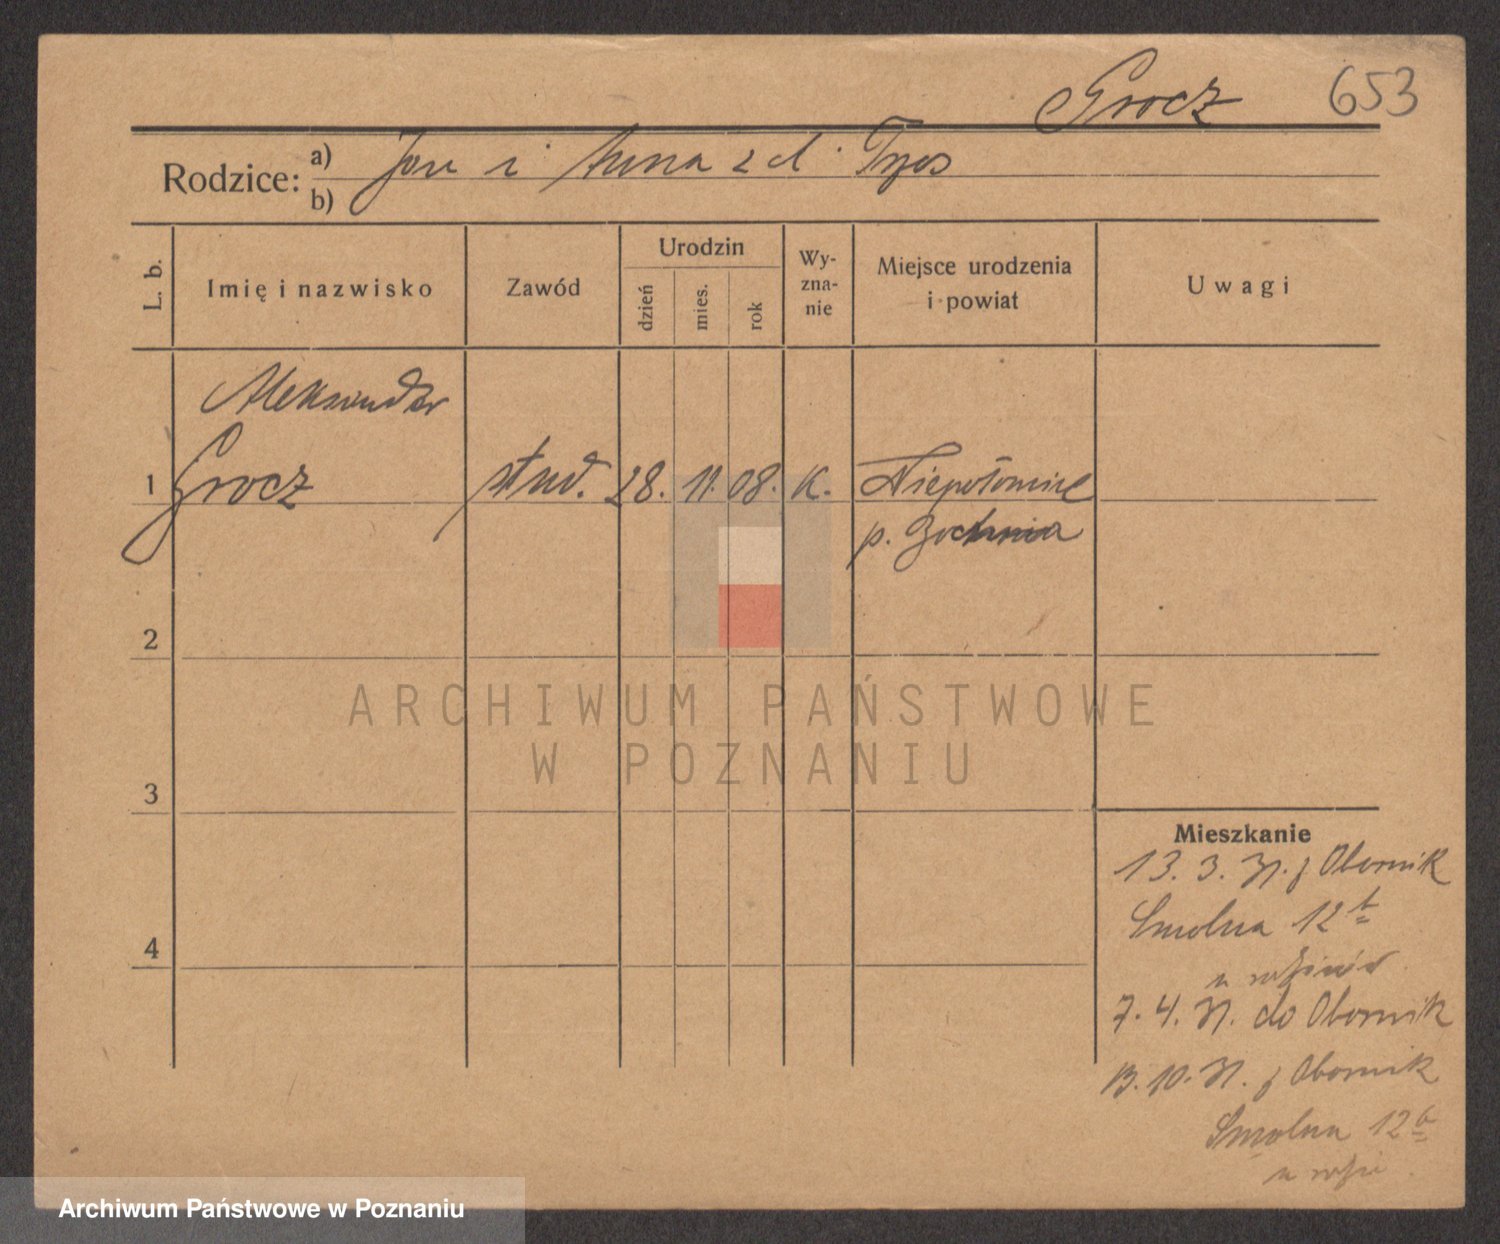 Grocz 653
Rodzice: a) Jan i Anna z d. Tyos
b)
L. b.
Imię i nazwisko
Zawód
Urodzin
dzień
mies.
rok
Wy-
zna-
nie
Miejsce urodzenia
i powiat
Uwagi
Aleksander
1 Grocz stud. 28. 11. 08. K. Niepołomice
p. Bochnia
2
3
4
Mieszkanie
13. 3. 31. z Obornik
Smolna 12 b
7. 4. 31. do Obornik
13. 10. 31. z Obornik
Smolna 12 b
ARCHIWUM PAŃSTWOWE
W POZNANIU
Archiwum Państwowe w Poznaniu